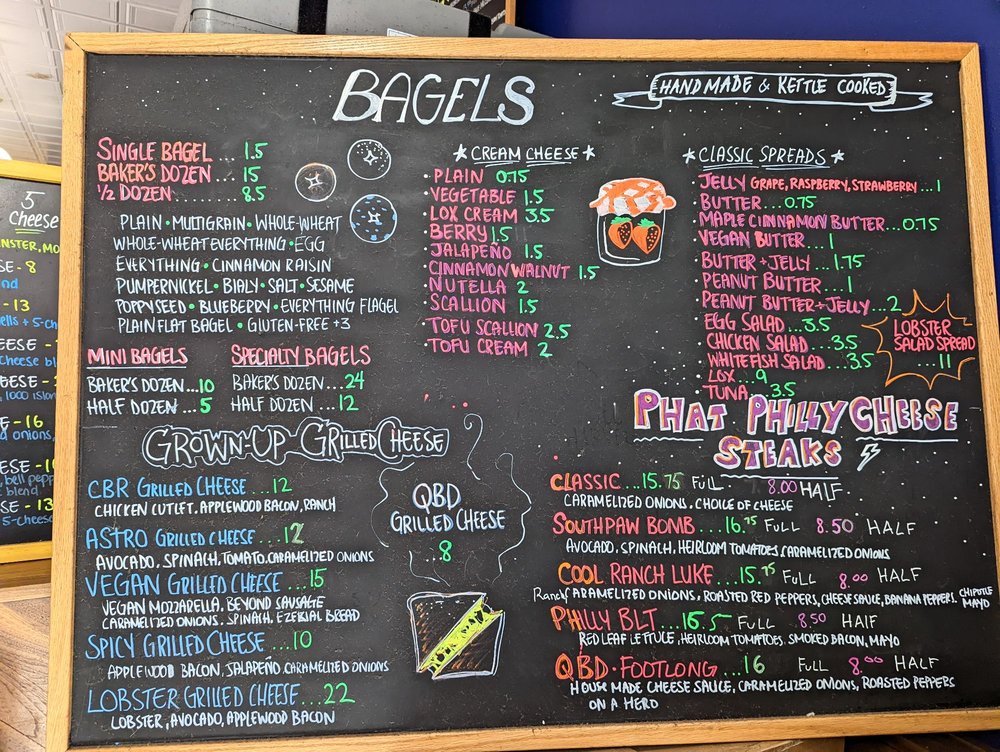 BAGELS
HANDMADE & KETTLE COOKED
SINGLE BAGEL ... 1.5
BAKER'S DOZEN ... 15
1/2 DOZEN ........ 8.5
PLAIN • MULTIGRAIN • WHOLE-WHEAT
WHOLE-WHEAT EVERYTHING • EGG
EVERYTHING • CINNAMON RAISIN
PUMPERNICKEL • BIALY • SALT • SESAME
POPPYSEED • BLUEBERRY • EVERYTHING FLAGEL
PLAIN FLAT BAGEL • GLUTEN-FREE +3
MINI BAGELS
BAKER'S DOZEN ... 10
HALF DOZEN ... 5
SPECIALTY BAGELS
BAKER'S DOZEN ... 24
HALF DOZEN ... 12
* CREAM CHEESE *
• PLAIN 0.75
• VEGETABLE 1.5
• LOX CREAM 3.5
• BERRY 1.5
• JALAPEÑO 1.5
• CINNAMON WALNUT 1.5
• NUTELLA 2
• SCALLION 1.5
• TOFU SCALLION 2.5
• TOFU CREAM 2
* CLASSIC SPREADS *
• JELLY GRAPE, RASPBERRY, STRAWBERRY ... 1
• BUTTER ... 0.75
• MAPLE CINNAMON BUTTER ... 0.75
• VEGAN BUTTER ... 1
• BUTTER + JELLY ... 1.75
• PEANUT BUTTER ... 1
• PEANUT BUTTER + JELLY ... 2
• EGG SALAD ... 3.5
• CHICKEN SALAD ... 3.5
• WHITEFISH SALAD ... 3.5
• LOX ... 9
• TUNA ... 3.5
LOBSTER
SALAD SPREAD
... 11
GROWN-UP GRILLED CHEESE
CBR GRILLED CHEESE ... 12
CHICKEN CUTLET, APPLEWOOD BACON, RANCH
ASTRO GRILLED CHEESE ... 12
AVOCADO, SPINACH, TOMATO, CARAMELIZED ONIONS
VEGAN GRILLED CHEESE ... 15
VEGAN MOZZARELLA, BEYOND SAUSAGE
CARAMELIZED ONIONS, SPINACH, EZEKIAL BREAD
SPICY GRILLED CHEESE ... 10
APPLEWOOD BACON, JALAPEÑO, CARAMELIZED ONIONS
LOBSTER GRILLED CHEESE ... 22
LOBSTER, AVOCADO, APPLEWOOD BACON
QBD
GRILLED CHEESE
... 8
PHAT PHILLY CHEESE
STEAKS
CLASSIC ... 15.75 FULL 8.00 HALF
CARAMELIZED ONIONS, CHOICE OF CHEESE
SOUTHPAW BOMB ... 16.75 FULL 8.50 HALF
AVOCADO, SPINACH, HEIRLOOM TOMATOES, CARAMELIZED ONIONS
COOL RANCH LUKE ... 15.75 FULL 8.00 HALF
Ranch CARAMELIZED ONIONS, ROASTED RED PEPPERS, CHEESE SAUCE, BANANA PEPPERS, CHIPOTLE
MAYO
PHILLY BLT ... 16.5 FULL 8.50 HALF
RED LEAF LETTUCE, HEIRLOOM TOMATOES, SMOKED BACON, MAYO
QBD • FOOTLONG ... 16 FULL 8.00 HALF
HOUSE MADE CHEESE SAUCE, CARAMELIZED ONIONS, ROASTED PEPPERS
ON A HERO
5
CHEESE